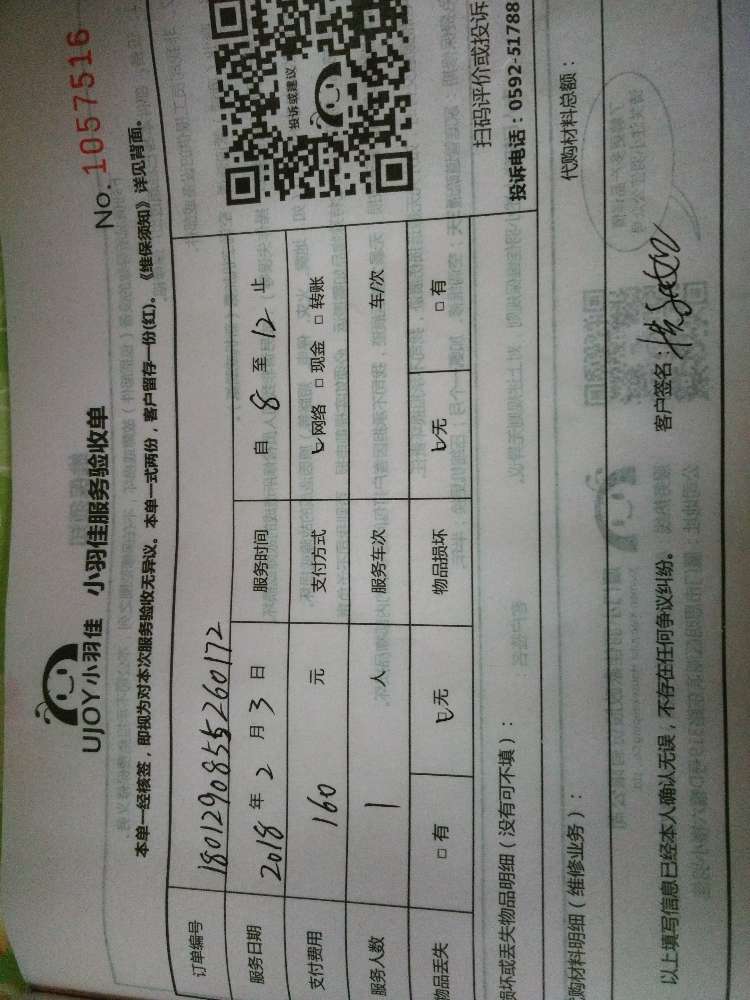 UJOY小羽佳 小羽佳服务验收单
No. 1057516
本单一经核签，即视为对本次服务验收无异议。本单一式两份，客户留存一份(红)。《维保须知》详见背面。
订单编号 1801290855260172
服务日期 2018 年 2 月 3 日 服务时间 自 8 至 12 止
支付费用 160 元 支付方式 网络 □ 现金 □ 转账
服务人数 1 人 服务车次 车/次
物品丢失 □ 有 无 物品损坏 无 □ 有
投诉或建议
扫码评价或投诉
投诉电话：0592-51788
损坏或丢失物品明细（没有可不填）：
购材料明细（维修业务）： 代购材料总额：
以上填写信息已经本人确认无误，不存在任何争议纠纷。 客户签名：